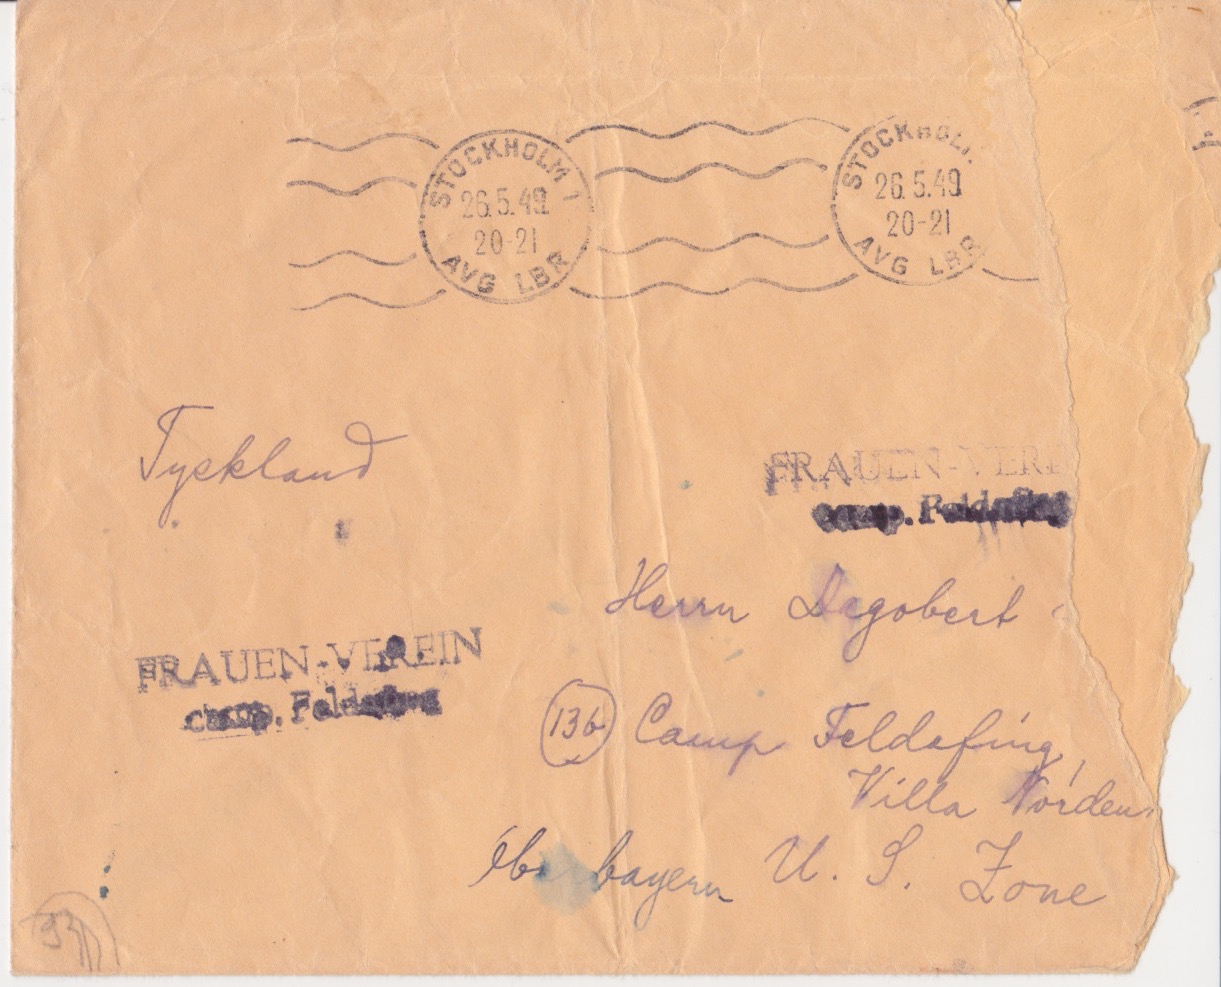 STOCKHOLM 1
26.5.49
20-21
AVG LBR
STOCKHOLM
26.5.49
20-21
AVG LBR
Tyckland
FRAUEN-VEREIN
camp. Feldafing
FRAUEN-VEREIN
camp. Feldafing
Herrn Dagobert
13b Camp Feldafing,
Villa Norden
Oberbayern U. S. Zone